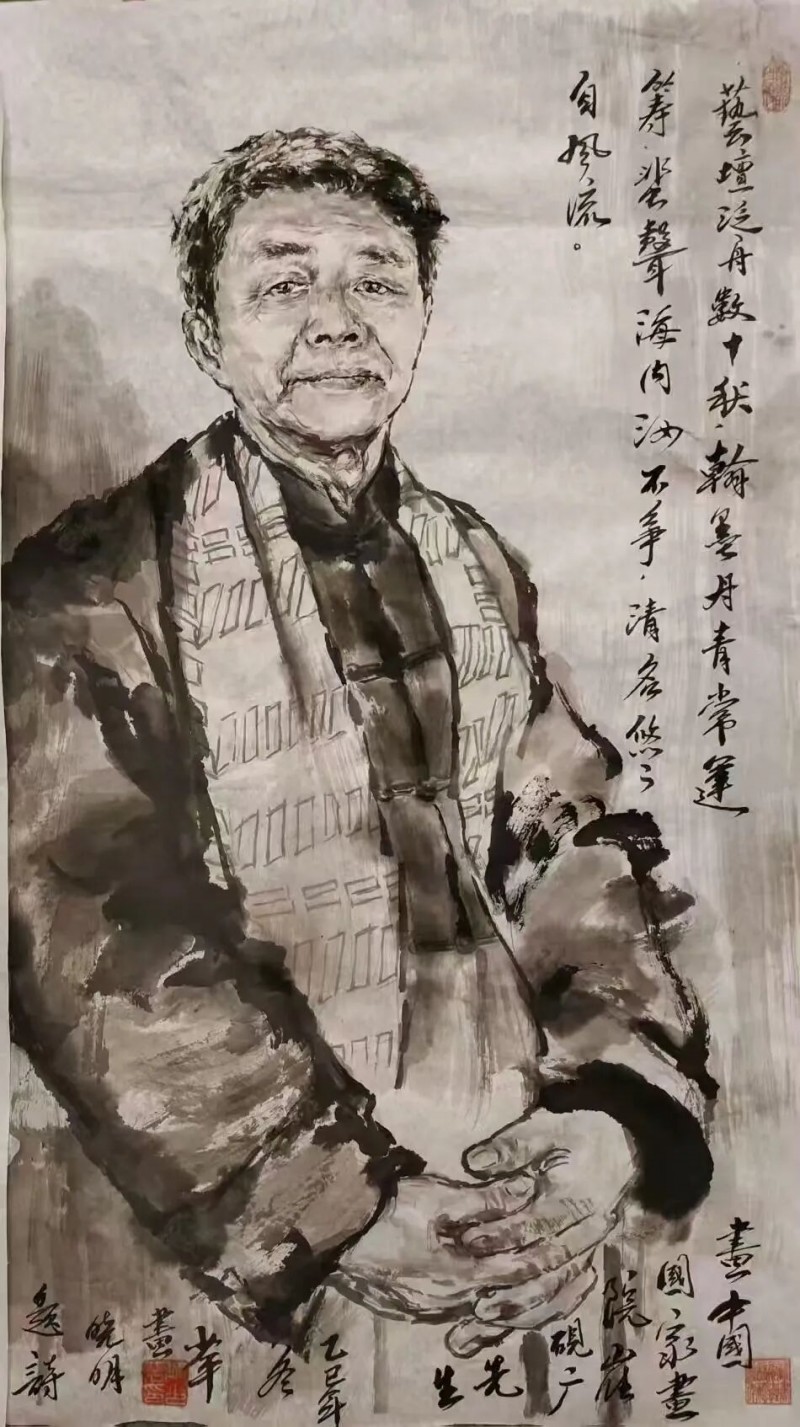 藝壇泛舟數十秋，翰墨丹青常運
籌，蜚聲海內汝不爭，清名悠々
自風流。
畫中國
國家畫
院崔
硯广
先
生
乙巳年
冬
華
畫
晓明
題詩